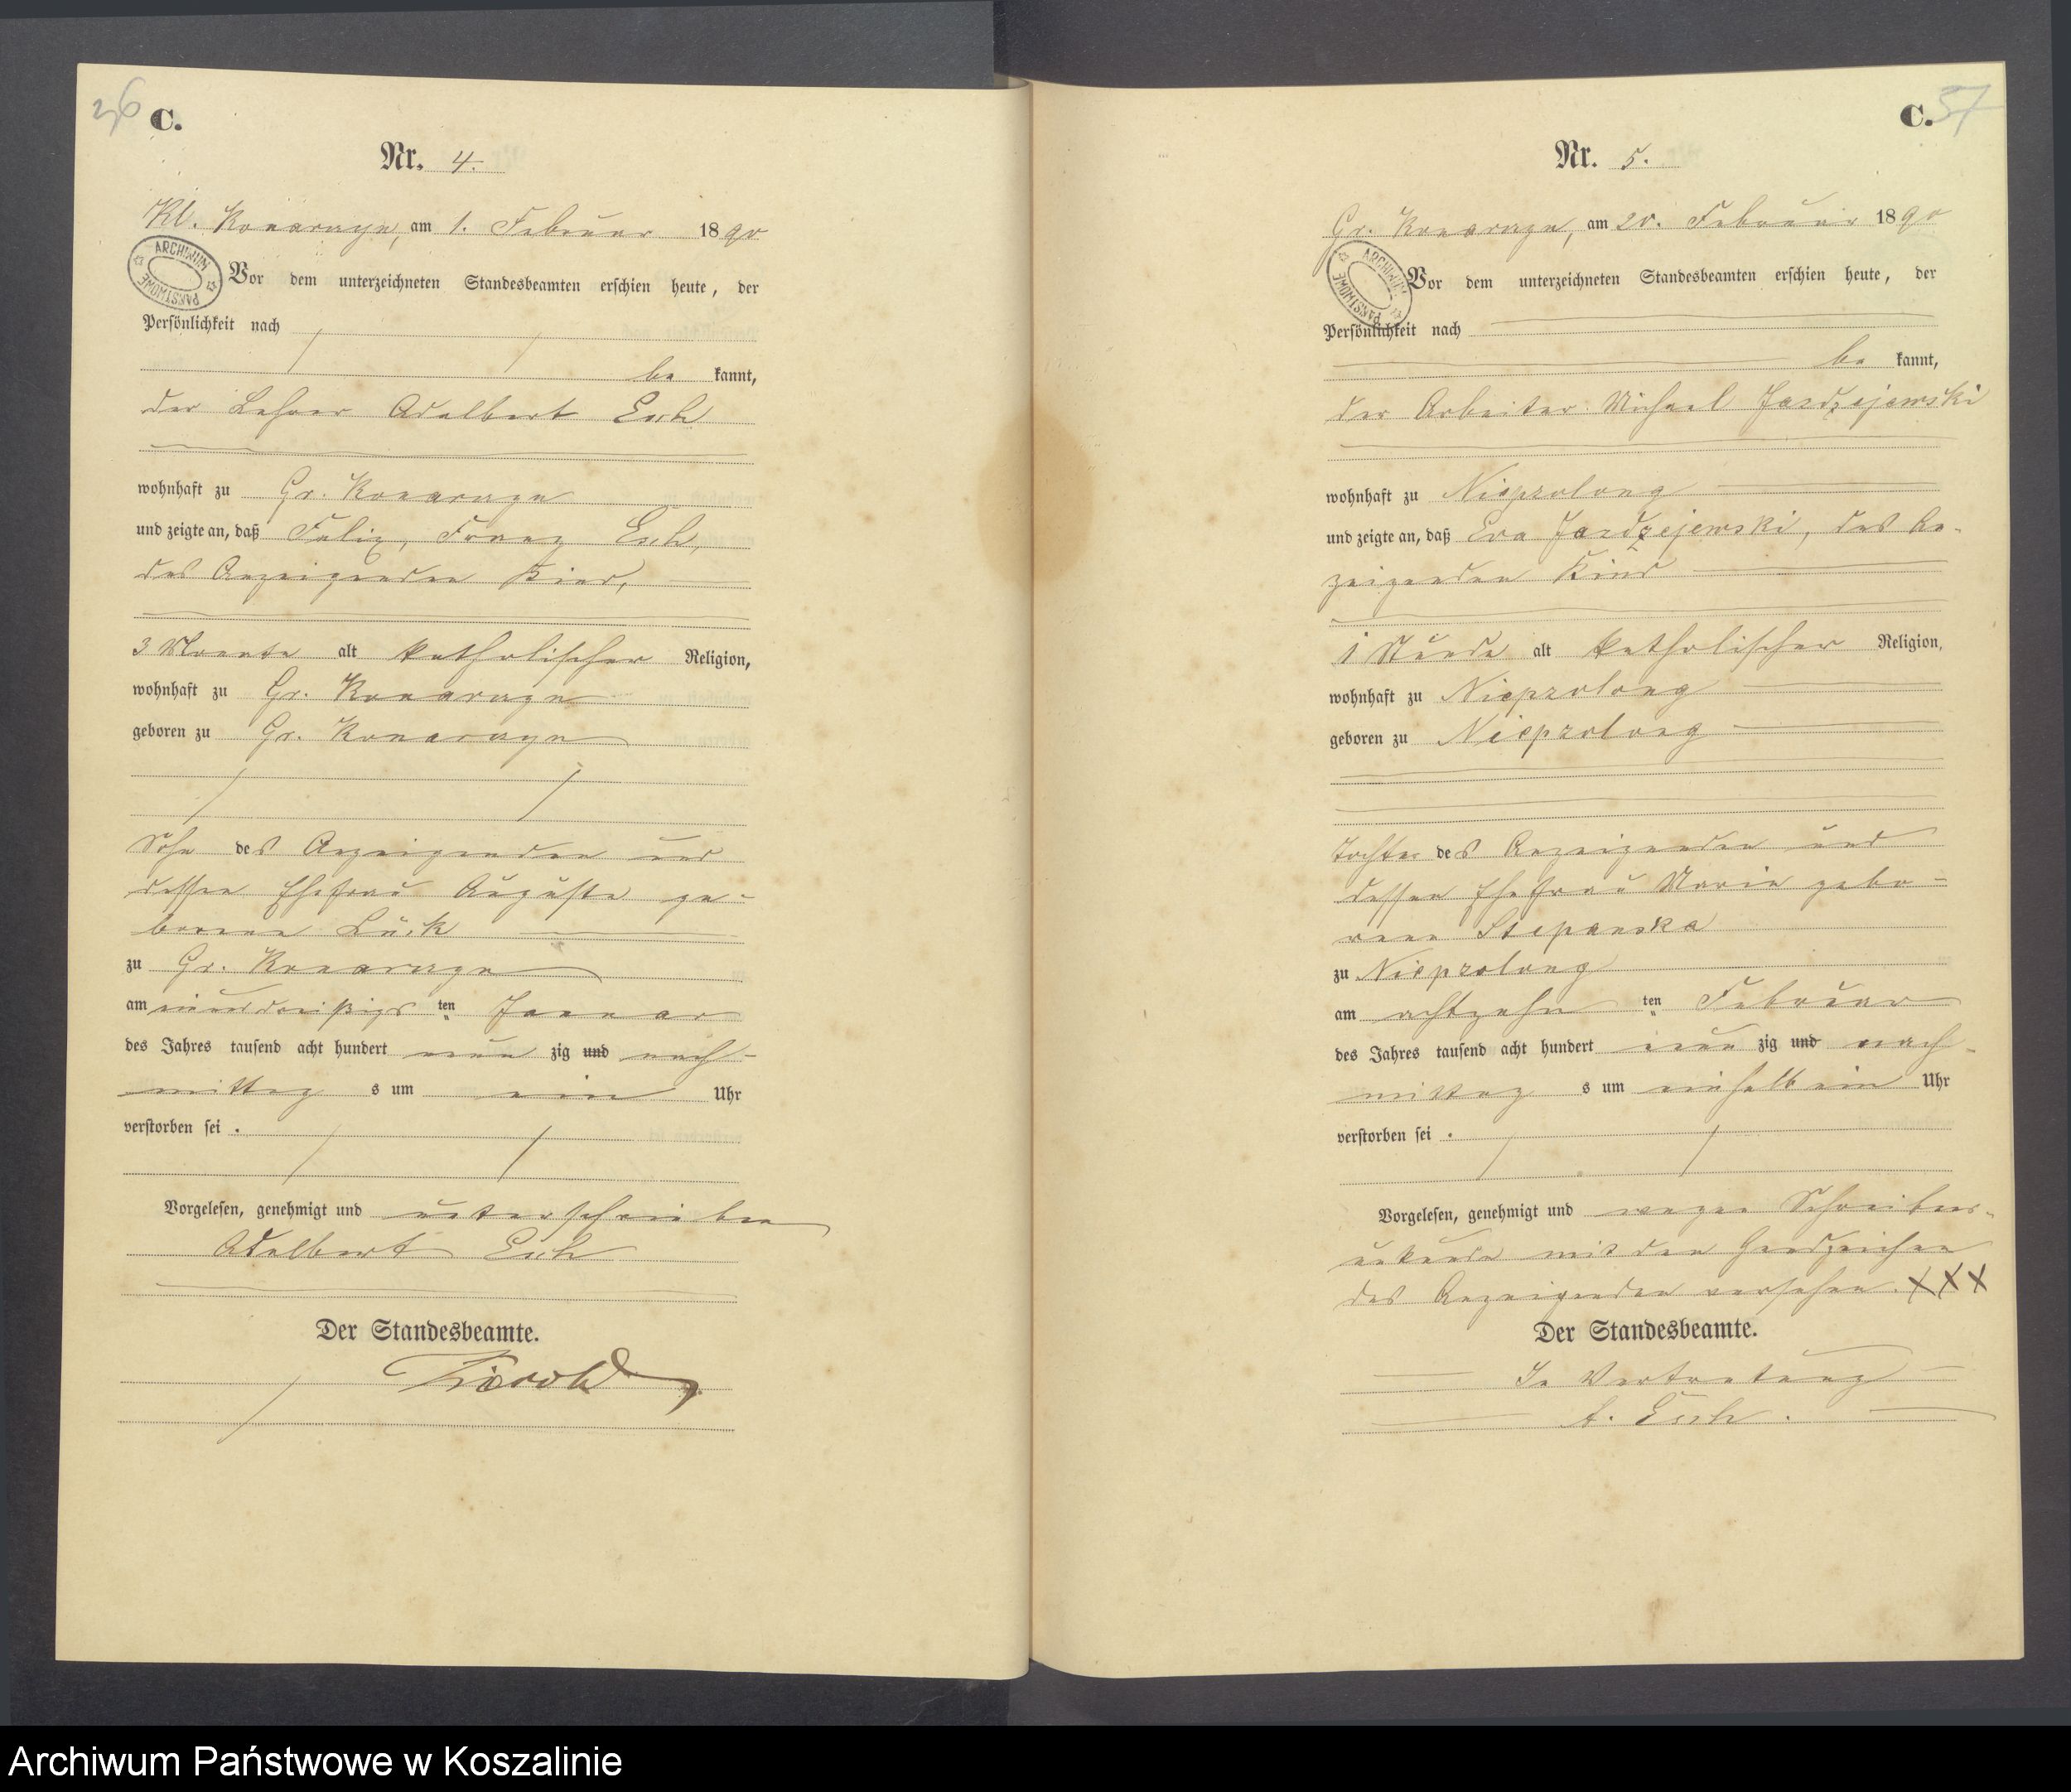 36
C.
Nr. 4.
Kl. Konarzyn, am 1. Februar 1890
ARCHIWUM PAŃSTWOWE
Vor dem unterzeichneten Standesbeamten erschien heute, der
Persönlichkeit nach
be kannt,
der Lehrer Adalbert Esch
wohnhaft zu Gr. Konarzyn
und zeigte an, daß Felix, Franz Esch,
des Anzeigenden Kind,
3 Monate alt katholischer Religion,
wohnhaft zu Gr. Konarzyn
geboren zu Gr. Konarzyn
Sohn des Anzeigenden und
dessen Ehefrau Auguste ge-
borene Lück
zu Gr. Konarzyn
am einunddreißigs ten Januar
des Jahres tausend acht hundert neun zig und nach-
mittag s um ein Uhr
verstorben sei.
Vorgelesen, genehmigt und unterschrieben
Adalbert Esch
Der Standesbeamte.
C. 37
Nr. 5.
Gr. Konarzyn, am 20. Februar 1890
ARCHIWUM PAŃSTWOWE
Vor dem unterzeichneten Standesbeamten erschien heute, der
Persönlichkeit nach
be kannt,
der Arbeiter Michael Jazdzejewski
wohnhaft zu Nieprzolong
und zeigte an, daß Eva Jazdzejewski, des An-
zeigenden Kind
1 Stunde alt katholischer Religion,
wohnhaft zu Nieprzolong
geboren zu Nieprzolong
Tochter des Anzeigenden und
dessen Ehefrau Marie gebo-
rene Stepanska
zu Nieprzolong
am achtzehn ten Februar
des Jahres tausend acht hundert neun zig und nach-
mittag s um einhalb ein Uhr
verstorben sei.
Vorgelesen, genehmigt und wegen Schreibens-
unkunde mit den Handzeichen
des Anzeigenden versehen. XXX
Der Standesbeamte.
In Vertretung
A. Esch.
Archiwum Państwowe w Koszalinie